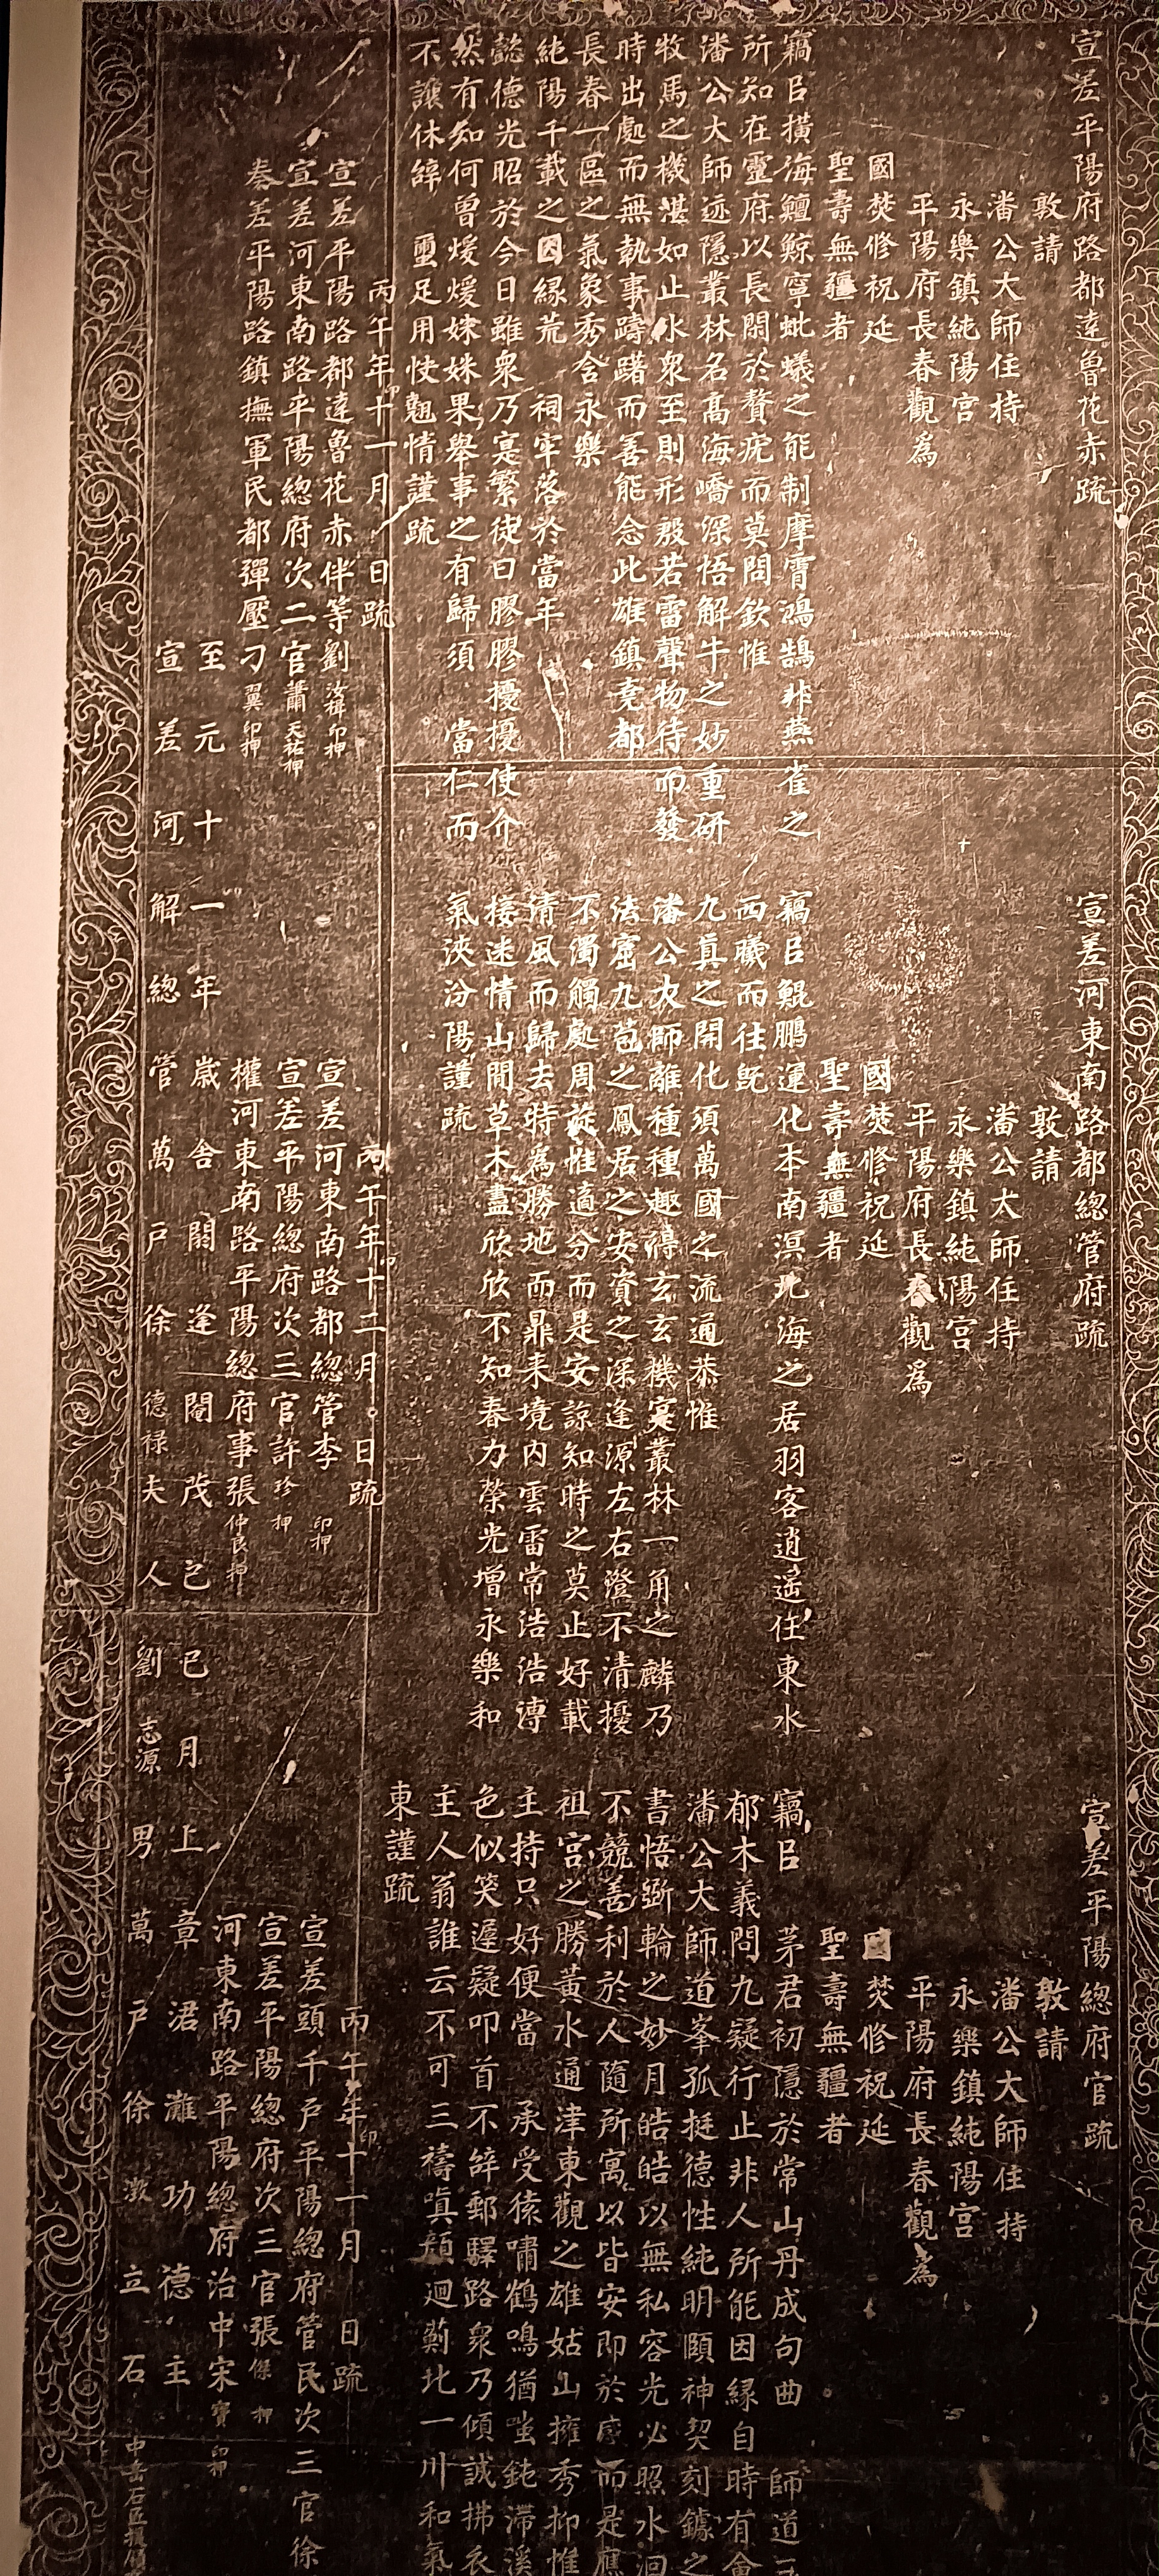 宣差平陽府路都達魯花赤疏
敦請
潘公大師住持
永樂鎮純陽宮
平陽府長春觀為
國焚修祝延
聖壽無疆者
竊㠯橫海鱣鯨寧蚍蟻之能制摩霄鴻鵠非燕雀之
所知在靈府以長閟於贅疣而莫問欽惟
潘公大師迹隱叢林名高海嶠深悟解牛之妙重研
牧馬之機湛如止水衆至則形殷若雷聲物待而發
時出處而無執事躊躇而善能念此雄鎮堯都
長春一區之氣象秀含永樂
純陽千載之因緣荒祠牢落於當年
懿德光昭於今日雖衆乃寔繁徒曰膠膠擾擾使介
然有知何曾煖煖姝姝果舉事之有歸須當仁而
不讓休辭重足用快翹情謹疏
丙午年十一月日疏
宣差平陽路都達魯花赤伴等劉汝楫印押
宣差河東南路平陽總府次二官蕭天祐押
奏差平陽路鎮撫軍民都彈壓刁翼印押
宣差河東南路都總管府疏
敦請
潘公大師住持
永樂鎮純陽宮
平陽府長春觀為
國焚修祝延
聖壽無疆者
竊㠯鯤鵬運化本南溟北海之居羽客逍遙任東水
西曦而往既
九真之開化須萬國之流通恭惟
潘公大師離種種趣得玄玄機寔叢林一角之麟乃
法窟九苞之鳳居之安資之深逢源左右澄不清擾
不濁觸處周旋惟適分而是安諒知時之莫止好載
清風而歸去特為勝地而鼎來境內雲雷常浩浩漙
接迷情山間草木盡欣欣不知春力榮光增永樂和
氣浹汾陽謹疏
丙午年十二月日疏
宣差河東南路都總管李印押
宣差平陽總府次三官許珍押
權河東南路平陽總府事張仲良押
宣差平陽總府官疏
敦請
潘公大師住持
永樂鎮純陽宮
平陽府長春觀為
國焚修祝延
聖壽無疆者
竊㠯茅君初隱於常山丹成句曲師道
郁木義問九疑行止非人所能因緣自時有會
潘公大師道峯孤挺德性純明頤神契刻鏤之
書悟斲輪之妙月皓皓以無私容光必照水洄
不競善利於人隨所寓以皆安即於感而是應
祖宮之勝黃水通津東觀之雄姑山擁秀抑惟
主持只好便當承受猿嘯鶴鳴猶嗤鈍滯溪
色似笑遲疑叩首不辭郵驛路衆乃傾誠拂衣
主人翁誰云不可三禱嗔顏迴薊北一川和氣
東謹疏
丙午年十一月日疏
宣差頭千戶平陽總府管民次三官徐
宣差平陽總府次三官張傑押
河東南路平陽總府治中宋寶印押
至元十一年歲舍閼逢閹茂己巳月上章涒灘功德主
宣差河解總管萬戶徐德祿夫人劉志源男萬戶徐澂立石
中嵒石匠